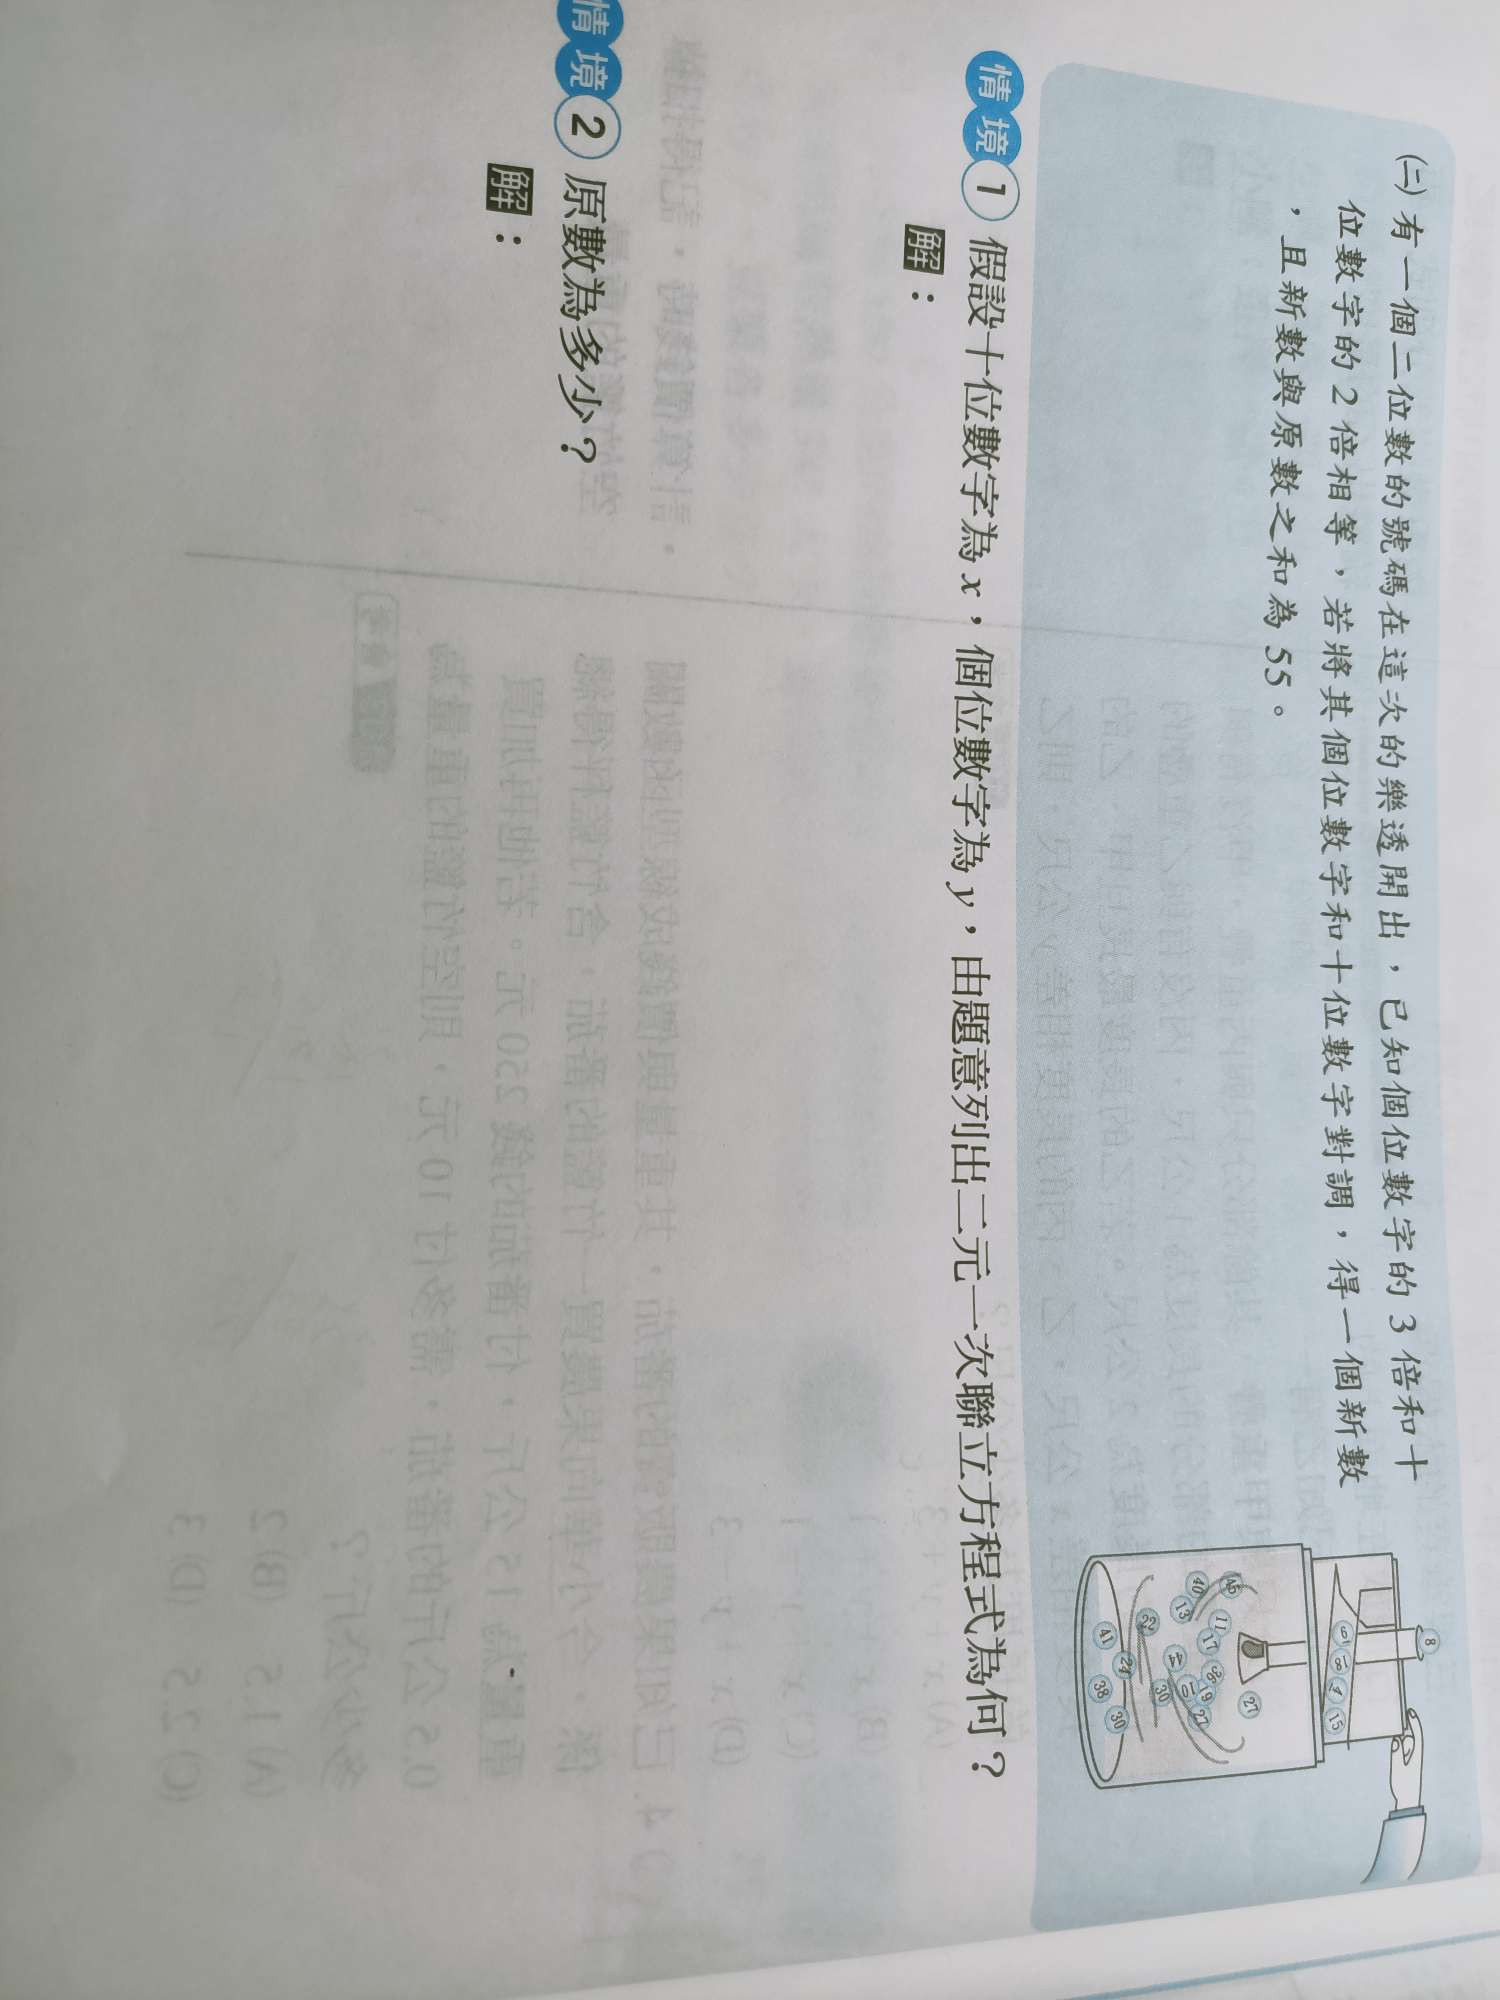 ㈡ 有一個二位數的號碼在這次的樂透開出，已知個位數字的 3 倍和十
位數字的 2 倍相等，若將其個位數字和十位數字對調，得一個新數
，且新數與原數之和為 55。
8
15
45
40
13
11
17
22
44
36
19
10
27
27
41
24
30
38
30
情境 1 假設十位數字為 x，個位數字為 y，由題意列出二元一次聯立方程式為何？
解：
情境 2 原數為多少？
解：